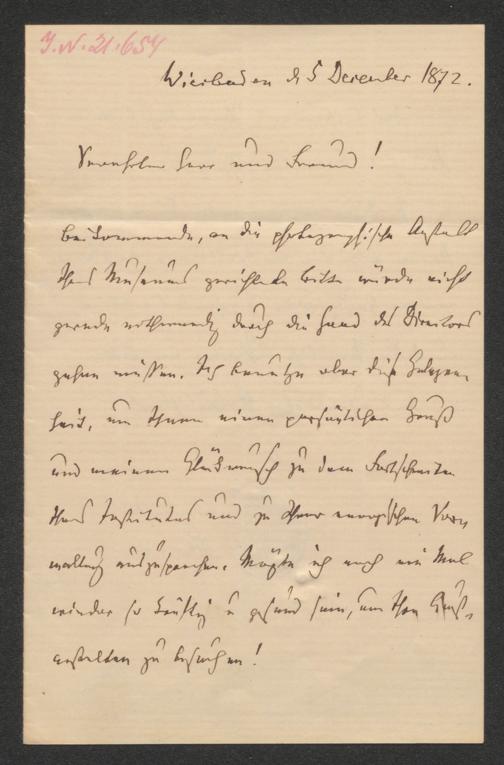 J.N. 21.654
Wiesbaden d 5 December 1872.
Verehrter Herr und Freund!
Beikommende, an die photographische Anstalt
Ihres Museums gerichtete Bitte würde nicht
gerade nothwendig durch die Hand des Directors
gehen müssen. Ich benutze aber diese Gelegen-
heit, um Ihnen einen persönlichen Gruß
und meinen Glückwunsch zu dem Fortschreiten
Ihres Institutes und zu Ihrer energischen Ver-
waltung auszusprechen. Möchte ich noch ein Mal
wieder so kräftig u gesund sein, um Ihre
anstalten zu besuchen!